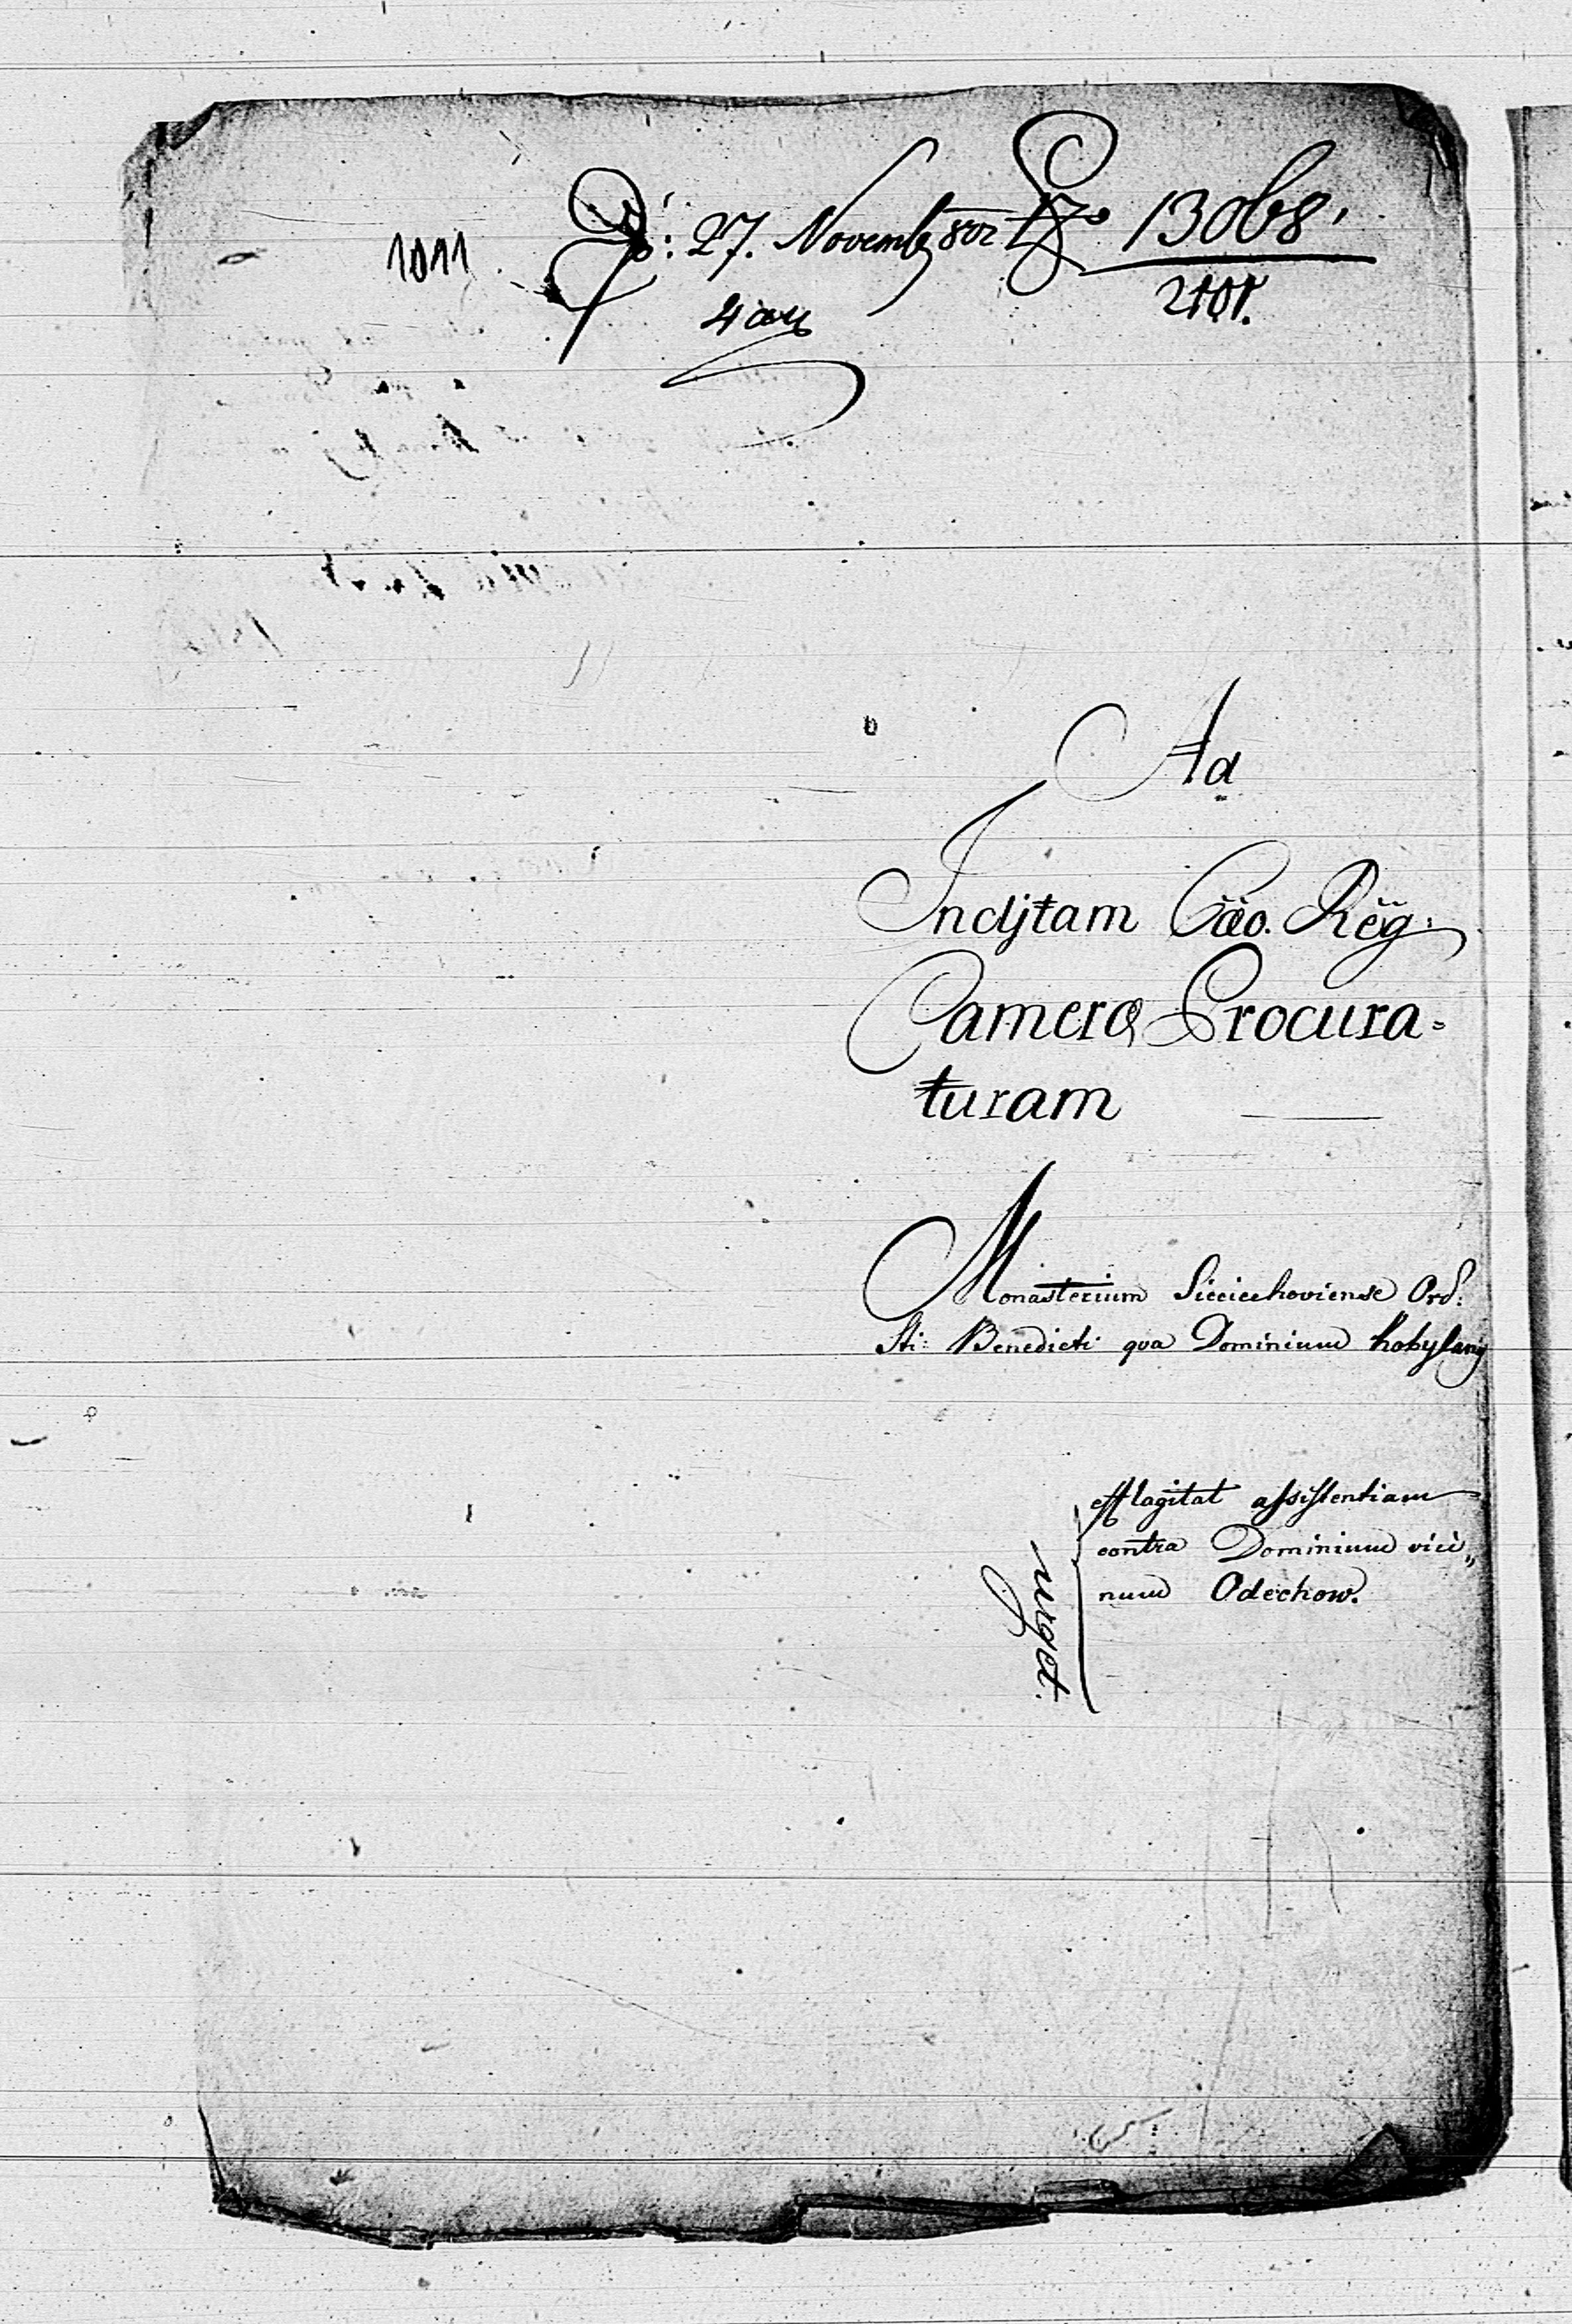 1011 Ps: 27. Novembr 802 Ex° 13068
4 2101.
Ad
Inclÿtam Cäeo. Rëg.
Camerae Procura=
turam
Monasterium Sieciechoviense Ord:
Sti: Benedicti qua Dominium Kobylany
efflagitat assistentiam
contra Dominium vici„
num Odechow.
urget.